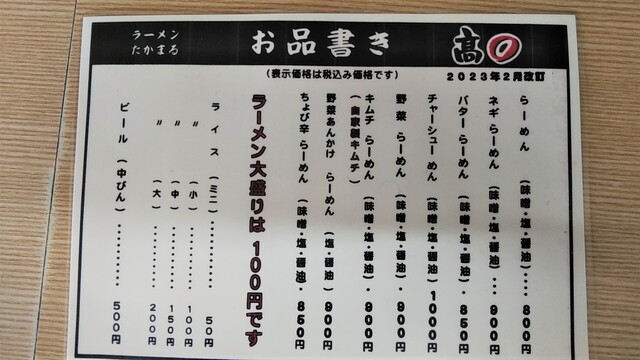 ラーメン
たかまる
お品書き
髙〇
(表示価格は税込み価格です)
2023年2月改訂
らーめん (味噌・塩・醤油)････ 800円
ネギらーめん (味噌・塩・醤油)･･･ 900円
バターらーめん (味噌・塩・醤油)・ 850円
チャーシューめん (味噌・塩・醤油) 1000円
野菜 らーめん (味噌・塩・醤油)・ 900円
キムチ らーめん (味噌・塩・醤油)・ 900円
(自家製キムチ)
野菜あんかけ らーめん (塩・醤油) 900円
ちょび辛 らーめん (味噌・塩・醤油)・ 850円
ラーメン大盛りは 100円です
ライス (ミニ)･････････ 50円
〃 (小)･･････････ 100円
〃 (中)･･････････ 150円
〃 (大)･･････････ 200円
ビール (中びん)･････････ 500円